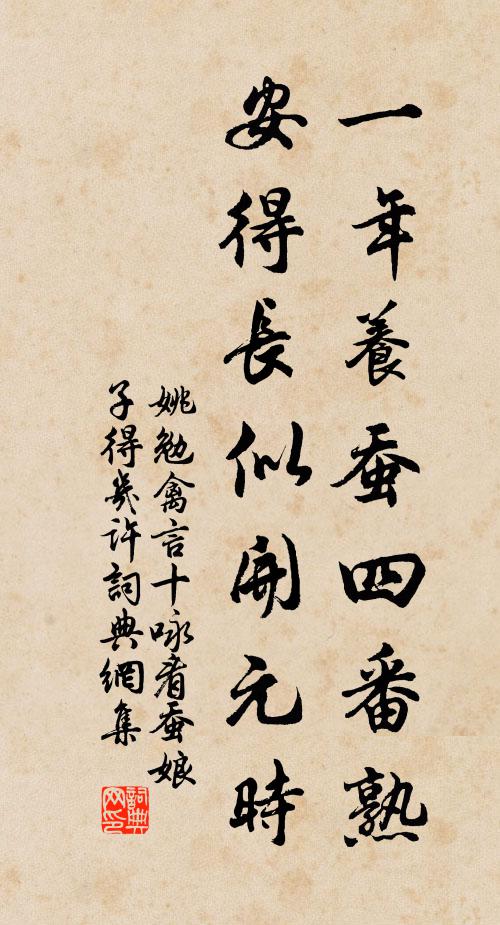 一年養蚕四番熟
安得長似開元時
姚勉禽言十咏看蚕娘
子得幾許詞典網集
詞典网印